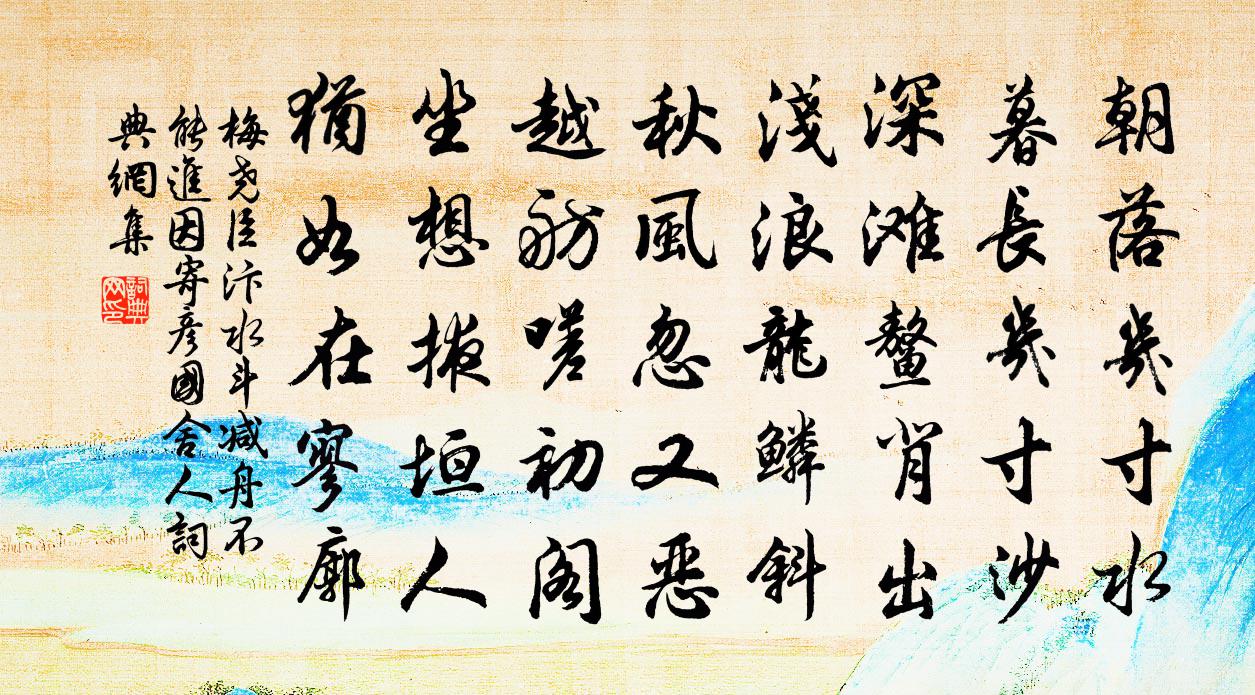 朝落幾寸水
暮長幾寸沙
深滩鳌背出
淺浪龍鱗斜
秋風忽又惡
越舫嗟初阁
坐想掖垣人
猶如在寥廓
梅尧臣汴水斗减舟不
能進因寄彦國舍人詞
典網集
詞典
网印